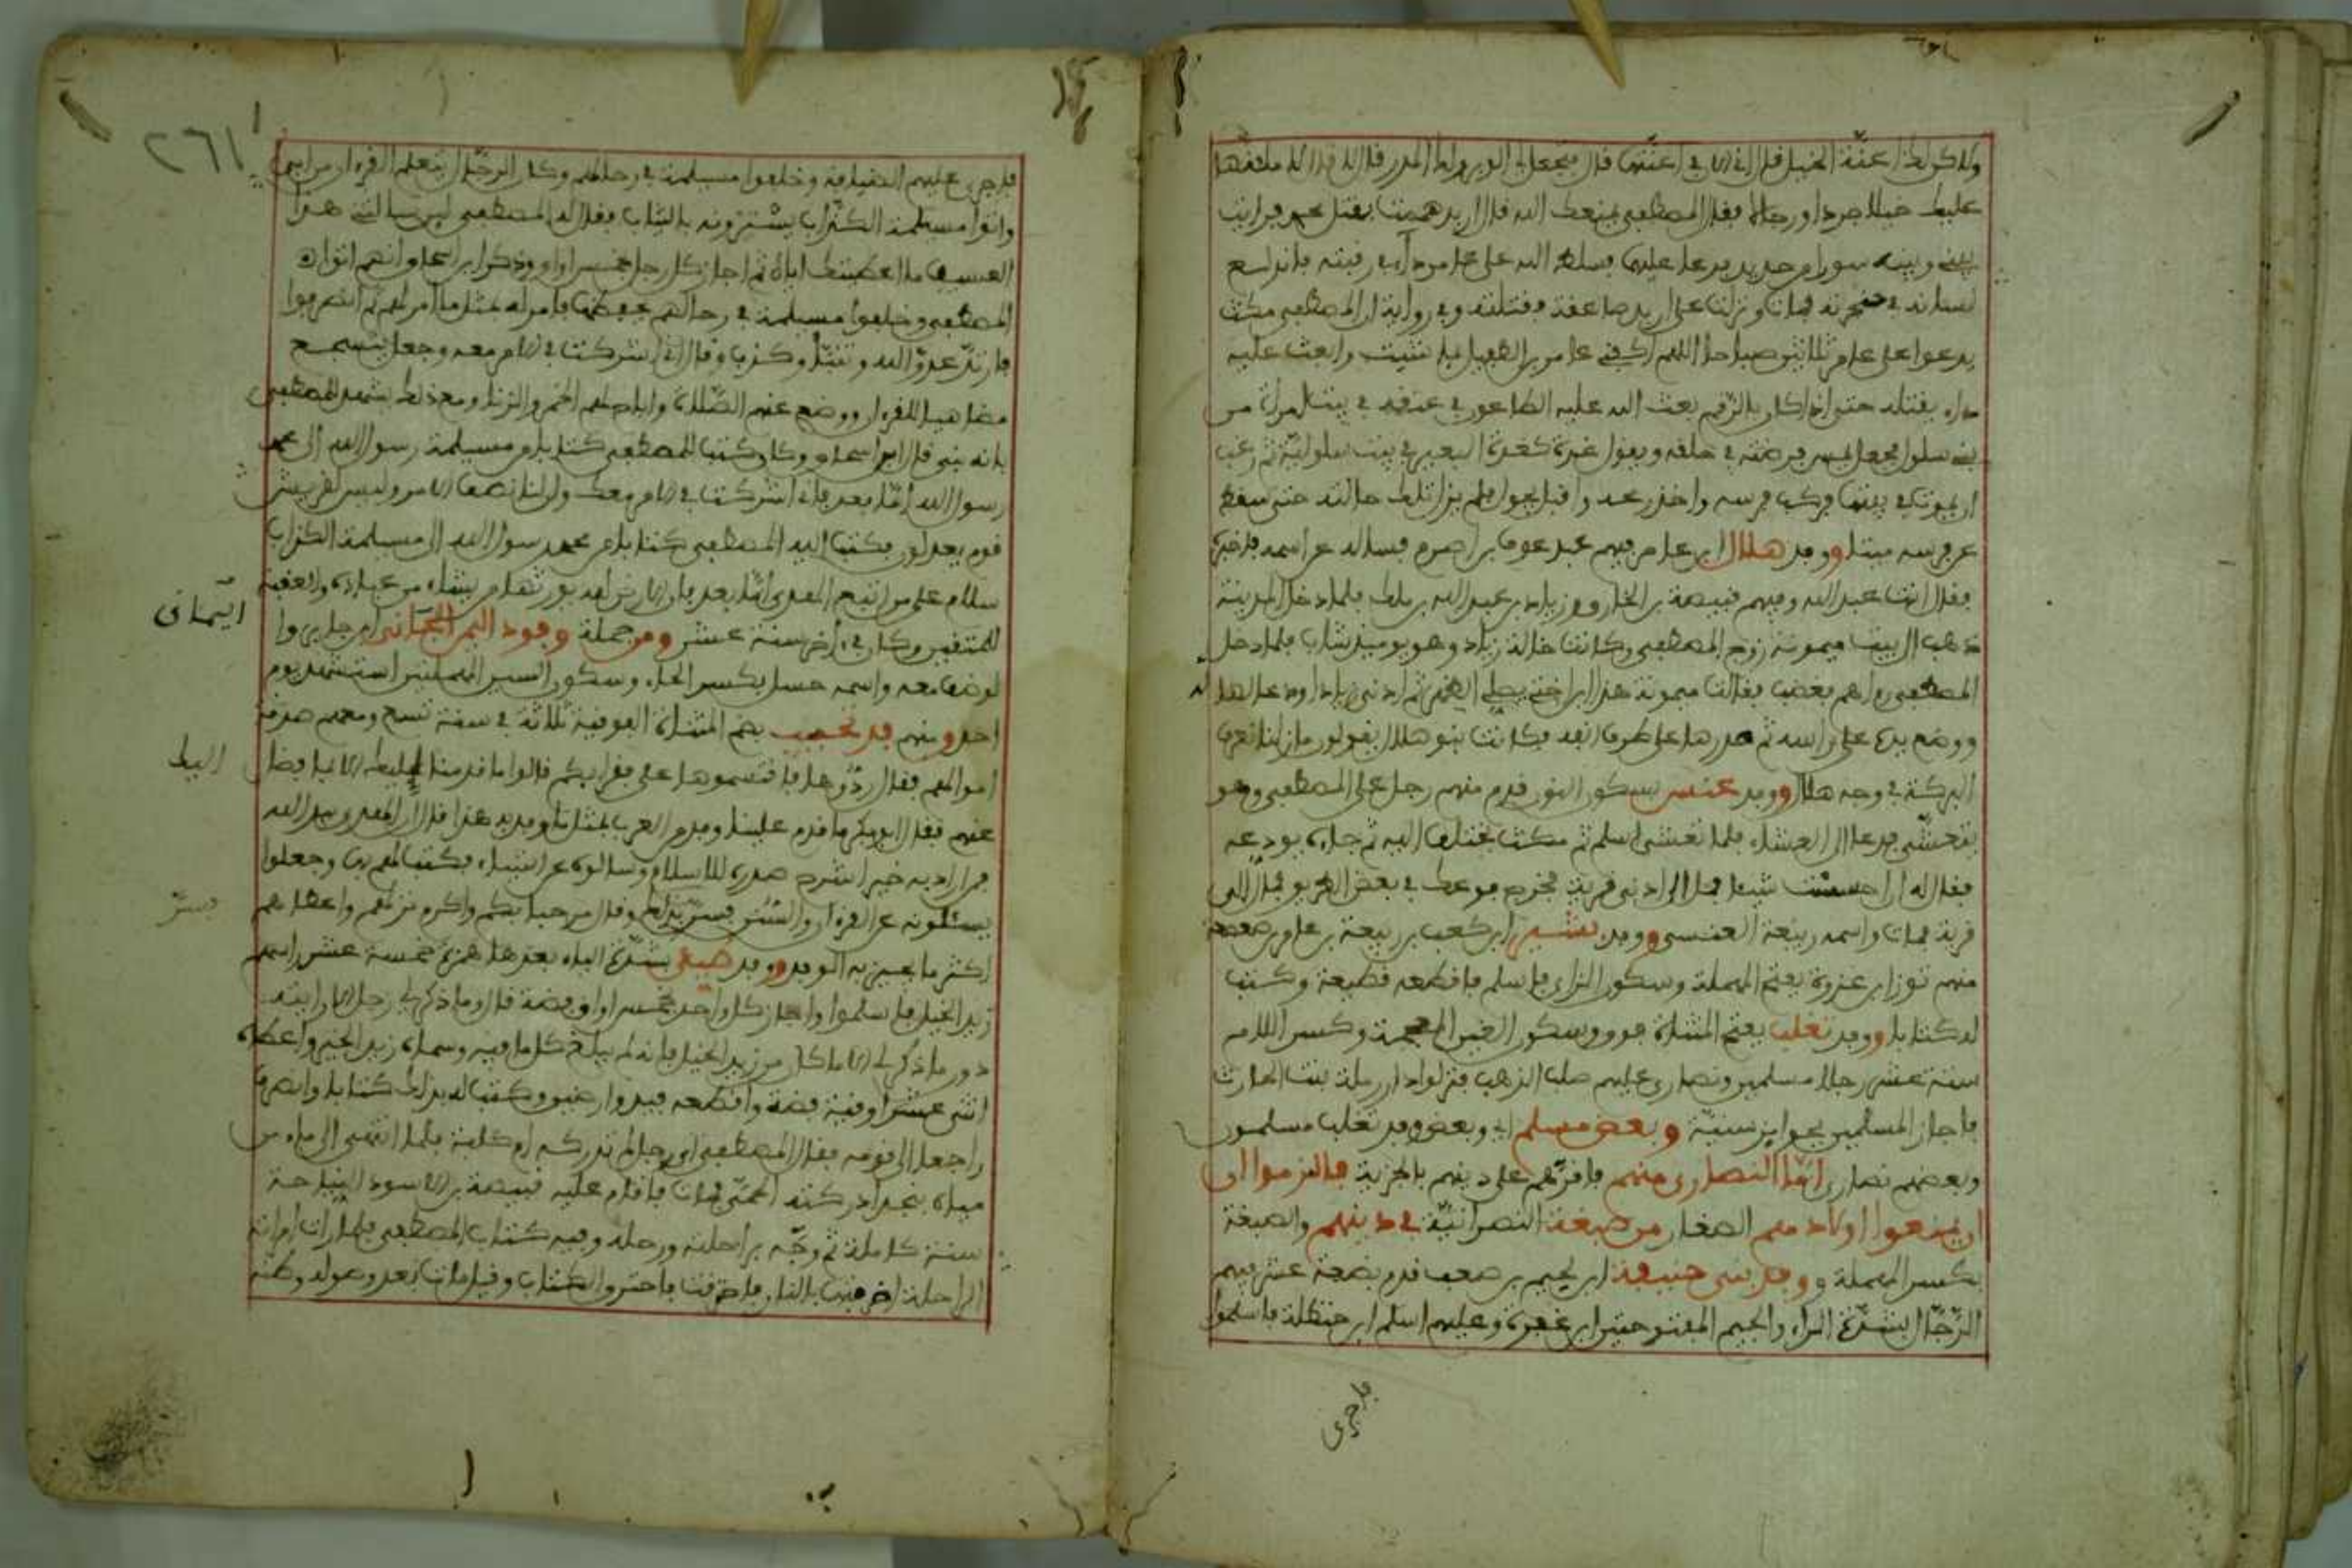 ولاكن لك اعنّة الخيل قال انا الان في اعنّتها قال فتجعل لي الوبر ولك المدر قال لا قال لاملانها
عليك خيلا جردا ورجالا فقال المصطفى يمنعك الله فلما اربد هممت بقتل محمد فرايت
بيني وبينه سورا من حديد فدعا عليهما فسلط الله على عامر داء في رقبته فاندلع
لسانه في حنجرته فمات ونزلت على اربد صاعقة فقتلته وفي رواية ان المصطفى مكث
يدعوا على عامر ثلاثين صباحا اللهم اكفني عامر بن الطفيل بما شئت وابعث عليه
داء يقتله حتى اذا كان بالرقم بعث الله عليه الطاعون في عنقه في بيت امراة من
بني سلول فجعل يمس قرحته في حلقه ويقول غدة كغدة البعير في بيت سلولية ثم رغب
ان يموت في بيتها فركب فرسه واخذ رمحه واقبل يجول فلم يزل تلك حالته حتى سقط
عن فرسه ميتا ووفد هلال ابن عامر فيهم عبد عوف بن اصرم فساله عن اسمه فاخبره
فقال انت عبد الله وفيهم قبيصة بن المخارق وزياد بن عبد الله بن ملك فلما دخل المدينة
ذهب الى بيت ميمونة زوج المصطفى وكانت خالة زياد وهو يوميذ شاب فلما دخل
المصطفى راهم بغضب فقالت ميمونة هذا ابن اختي فصلى الظهر ثم ادنى زيادا ودعا له
ووضع يده على راسه ثم حدرها على طرف انفه فكانت بنو هلال يقولون ما زلنا نعرف
البركة في وجه هلال ووفد عنس بسكون النون قدم منهم رجل على المصطفى وهو
يتعشى فدعا الى العشاء فلما تعشى اسلم ثم مكث يختلف اليه ثم جاءه يودعه
فقال له ان احسست شيئا فمل الى ادنى قرية فخرج فوعك في بعض الطريق فمال الى
قرية فمات واسمه ربيعة العنسي ووفد بشير ابن كعب بن ربيعة بن عامر بن صعصعة
منهم ثور ابن عزرة بفتح المهملة وسكون الزاي فاسلم فاقطعه قطيعة وكتب
له كتابا ووفد تغلب بفتح المثناة فوق وسكون الغين المعجمة وكسر اللام
ستة عشر رجلا مسلمين ونصارى عليهم صلب الذهب فنزلوا دار رملة بنت الحارث
فاجاز المسلمين بجوايز سنيّة وبعض مسلم اي وبعض وفد تغلب مسلمون
وبعضهم نصارى امّا النصارى منهم فاقرّهم على دينهم بالجزية فالتزموا اي
ان يمنعوا اولادهم الصغار من صبغة النصرانيّة في دينهم والصبغة
بكسر المهملة ووفد بني حنيفة ابن لجيم بن صعب قدم بضعة عشر فيهم
الرّجّال بتشديد الراء والجيم المفتوحتين ابن عنفوة وعليهم اسلم ابن حنظلة فاسلموا
فاجرى
٢٦١
فاجرى عليهم الضيافة وخلفوا مسيلمة في رحالهم وكان الرجّال يتعلم القرءان من ابي
واتوا مسيلمة الكذاب يسترونه بالثياب فقال له المصطفى لئن سالتني هذا
العسيب ما اعطيتك اياه ثم اجاز كل رجل خمس اواق وذكر ابن اسحاق انهم اتوا
المصطفى وخلفوا مسيلمة في رحالهم يحفظها فامر له مثل ما امر لهم ثم انصرفوا
فارتدّ عدوّ الله وتنبّا وكذب وقال اني اشركت في الامر معه وجعل يسجع
مضاهيا للقرءان ووضع عنهم الصّلاة واباح لهم الخمر والزنا ومع ذلك يشهد للمصطفى
بانه نبي قال ابن اسحاق وكان كتب للمصطفى كتابا من مسيلمة رسول الله الى محمد
رسول الله امّا بعد فاني اشركت في الامر معك وان لنا نصف الامر وليس لقريش
قوم يعدلون فكتب اليه المصطفى كتابا من محمد رسول الله الى مسيلمة الكذاب
سلام على من اتبع الهدى امّا بعد فان الارض لله يورثها من يشاء من عباده والعقبة
للمتقين وكان في اخر سنة عشر ومن جملة وفود اليمن اليماني ابن جابر وا
اليماني
لوضع معه واسمه حسل بكسر الحاء وسكون السين المهملتين استشهد يوم
احد ومنهم قد تجيب بضم المثناة الفوقية ثلاثة في سنة تسع ومعهم صدقة
اموالهم فقال ردّوها فاقسموها على فقرايكم قالوا ما قدمنا اليك الا بما فضل
اليك
عنهم فقال ابو بكر ما قدم علينا وفد من العرب بمثل ما وفد به هذا قال ان الهدى بيد الله
فمن اراد به خيرا شرح صدره للاسلام وسالوه عن اشياء فكتب لهم بها وجعلوا
يسئلونه عن القرءان والسّنن فسرّ بذلك وقال مرحبا بكم واكرم نزلهم واعطاهم
فسرّ
اكثر ما يجيز به الوفد ووفد طيئ بشدّة الياء بعدها همزة خمسة عشر راسهم
زيد الخيل فاسلموا واجاز كل واحد خمس اواق فضة قال وما ذكر لي رجل الا رايته
دون ما ذكر لي الا ما كان من زيد الخيل فانه لم يبلغ كل ما فيه وسماه زيد الخير واعطاه
اثني عشر اوقية فضة واقطعه فيد وارضين وكتب له بذلك كتابا وانصرف
راجعا الى قومه فقال المصطفى اي رجل لم تدركه ام كلبة فلما انتهى الى ماء من
مياه نجد ادركته الحمّى فمات فاقام عليه قبيصة بن الاسود النياحة
سنة كاملة ثم وجّه براحلته ورحله وفيه كتاب المصطفى فلما رات امراته
الراحلة ضرمتها بالنار فاحرقت فاحترق الكتاب وقيل مات بعده وهو له وكنه